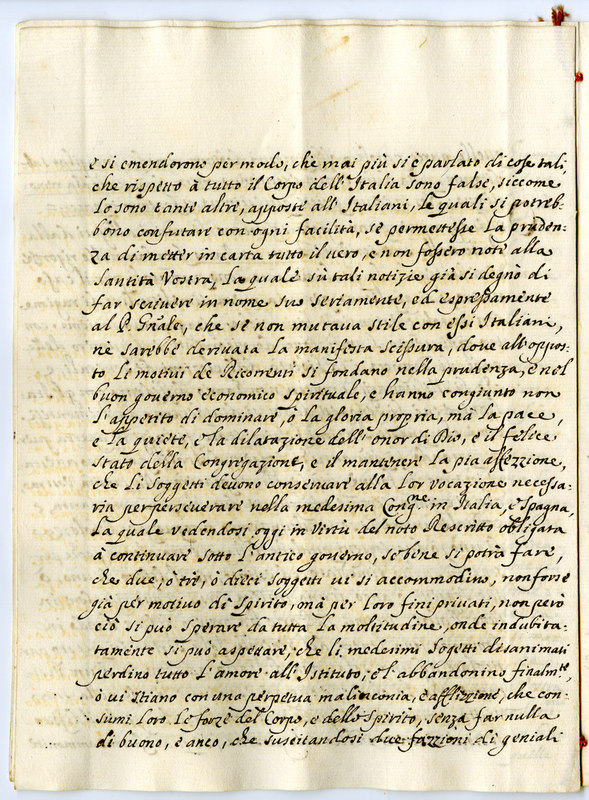 e si emendorono per modo, che mai più si è parlato di cose tali,
che rispetto à tutto il Corpo dell'Italia sono false, siccome
Lo sono tante altre, apposte all'Italiani, le quali si potreb-
bono confutare con ogni facilità, se permettesse La pruden-
za di metter in carta tutto il vero, e non fossero note alla
Santità Vostra, La quale sù tali notizie già si degnò di
far scrivere in nome suo seriamente, ed espressamente
al P. Gnãle, che se non mutava stile con essi Italiani,
ne sarebbe derivata La manifesta scissura, dove all'oppos-
to Li motivi de Ricorrenti si fondano nella prudenza, e nel
buon governo economico spirituale, e hanno congiunto non
L'appetito di dominare, ò La gloria propria, mà La pace,
e La quiete, e la dilatazione dell'onor di Dio, e il felice
stato della Congregazione, e il mantenere La pia affezzione,
che Li Soggetti devono conservare alla Lor vocazione necessa-
ria per perseverare nella medesima Congne. in Italia, e Spagna,
La quale vedendosi oggi in virtù del noto Rescritto obligata
à continuare sotto L'antico governo, se bene si potrà fare,
che due, ò tre, ò dieci soggetti vi si accommodino, non forse
già per motivo di Spirito, mà per Loro fini privati, non però
ciò si può sperare da tutta La moltitudine, onde indubita-
tamente si può aspettare, che li medesimi Sogetti disanimati
perdino tutto L'amore all'Istituto, e L'abbandonino finalmte,
ò vi stiano con una perpetua malinconia, e afflizzione, che con-
sumi Loro Le forze del Corpo, e dello Spirito, senza far nulla
di buono, e anco, che suscitandosi due fazzioni di geniali